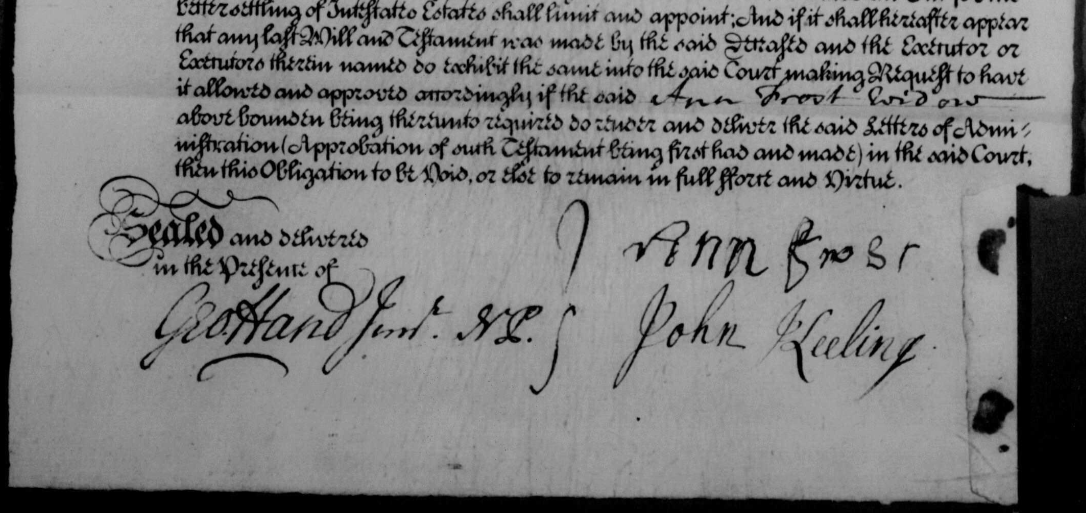 better settling of Intestates Estates shall limit and appoint; And if it shall hereafter appear
that any last Will and Testament was made by the said Deceased and the Executor or
Executors therein named do exhibit the same into the said Court making Request to have
it allowed and approved accordingly if the said Ann Frost Widow
above bounden being thereunto required do render and deliver the said Letters of Admi-
nistration (Approbation of such Testament being first had and made) in the said Court,
then this Obligation to be Void, or else to remain in full fforce and Virtue.
Sealed and delivered
in the Presence of
Ann Frost
Geo Hand Junr. N.P.
John Keeling